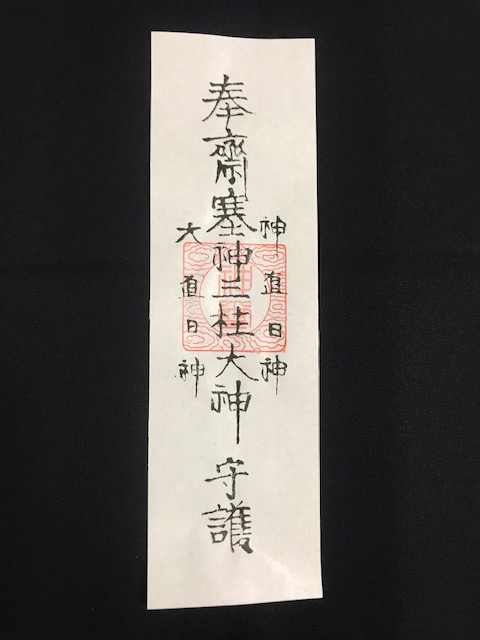 神直日神
奉齋塞神三柱大神 守護
大直日神